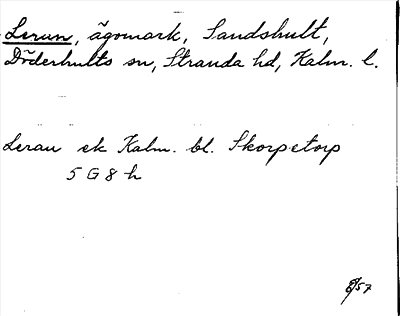 Lerun, ägomark, Sandshult,
Döderhults sn, Stranda hd, Kalm. l.
Lerau ek Kalm. bl. Skorpetorp
5 G 8 h
/57